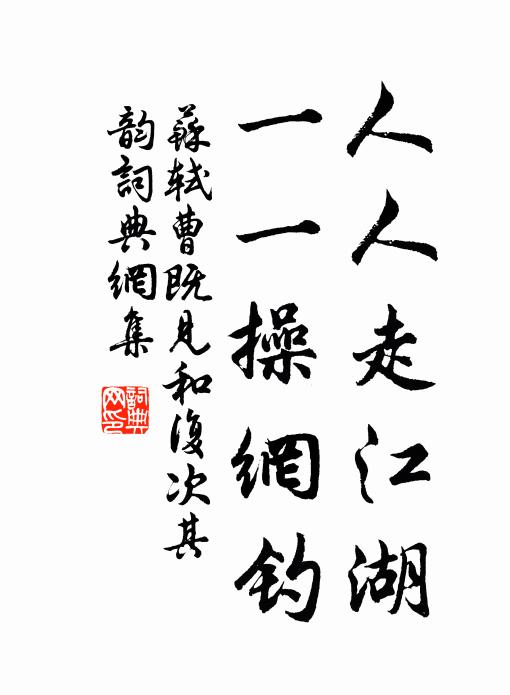 人人走江湖
一一操網釣
蘇軾曹既見和復次其
韵詞典網集
詞典网印